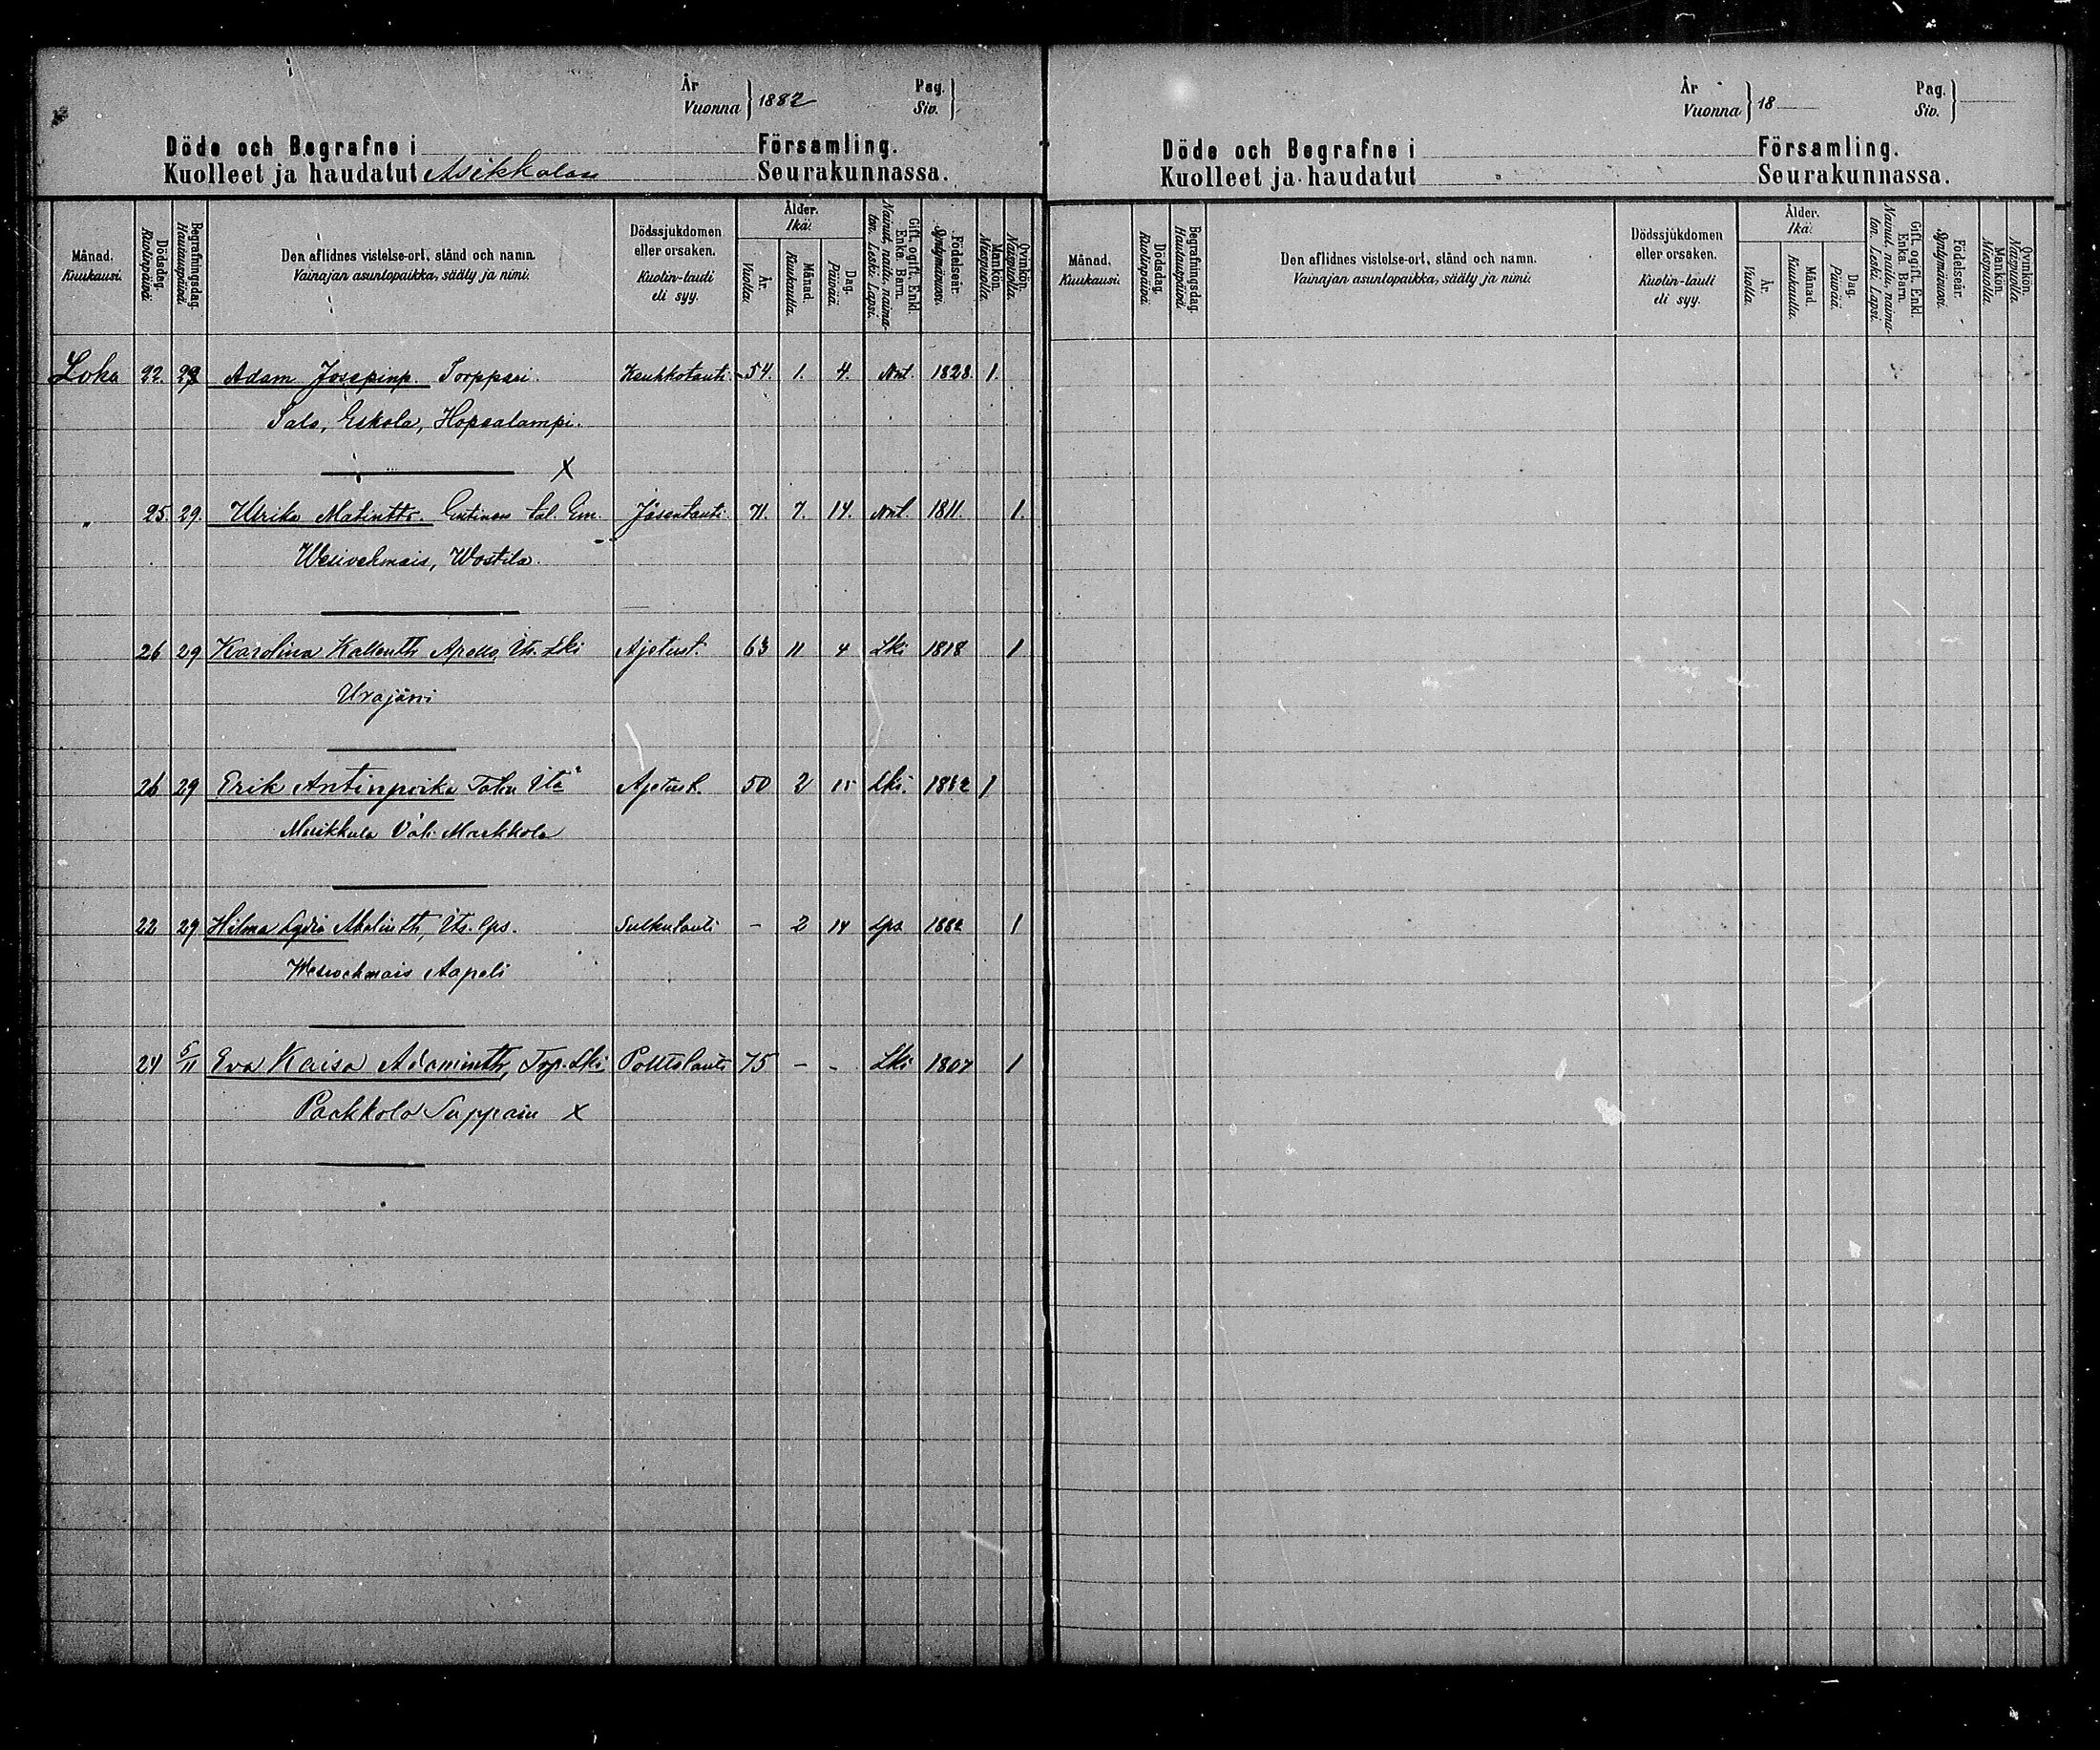 År
Vuonna } 1882
Pag.
Siv. }
Döde och Begrafne i Församling.
Kuolleet ja haudatut Asikkalan Seurakunnassa.
Månad. Kuukausi.
Dödsdag. Kuolinpäivä.
Begrafningsdag. Hautauspäivä.
Den aflidnes vistelse-ort, stånd och namn.
Vainajan asuntopaikka, sääty ja nimi.
Dödssjukdomen eller orsaken.
Kuolin-tauti eli syy.
Ålder. Ikä.
År. Vuotta.
Månad. Kuukautta.
Dag. Päivää.
Gift, ogift, Enkl. Enka. Barn.
Nainut, naitu, naimaton. Leski. Lapsi.
Födelseår. Syntymävuosi.
Mankön. Miespuolia.
Qvinkön. Naispuolia.
Loka 22. 29 Adam Josepinp. Torppari. Keuhkotauti 54. 1. 4. Nnt. 1828. 1.
Salo, Eskola, Hopsalampi.
X
" 25. 29. Ulrika Matintr. Entinen tal. Em. Jäsentauti 71. 7. 14. Nnt. 1811. 1.
Wesivehmais, Wostila.
26 29 Karolina Kallentr Apollo, Its. Lki Ajetust. 63 11 4 Lki 1818 1
Urajärvi
26 29 Erik Antinpoika Talon Itä Ajetust. 50 2 15 Lki. 1832 1
Muikkula Väli Markkola
22 29 Hilma Lydia Abelintr, Its. lps. Sulkutauti - 2 14 Lps 1882 1
Wesivehmais Aapeli
24 5/11 Eva Kaisa Adamintr, Torp. Lki Polttotauti 75 - - Lki 1807 1
Paakkola Seppain X
År
Vuonna } 18
Pag.
Siv. }
Döde och Begrafne i Församling.
Kuolleet ja haudatut Seurakunnassa.
Månad. Kuukausi.
Dödsdag. Kuolinpäivä.
Begrafningsdag. Hautauspäivä.
Den aflidnes vistelse-ort, stånd och namn.
Vainajan asuntopaikka, sääty ja nimi.
Dödssjukdomen eller orsaken.
Kuolin-tauti eli syy.
Ålder. Ikä.
År. Vuotta.
Månad. Kuukautta.
Dag. Päivää.
Gift, ogift, Enkl. Enka. Barn.
Nainut, naitu, naimaton. Leski. Lapsi.
Födelseår. Syntymävuosi.
Mankön. Miespuolia.
Qvinkön. Naispuolia.